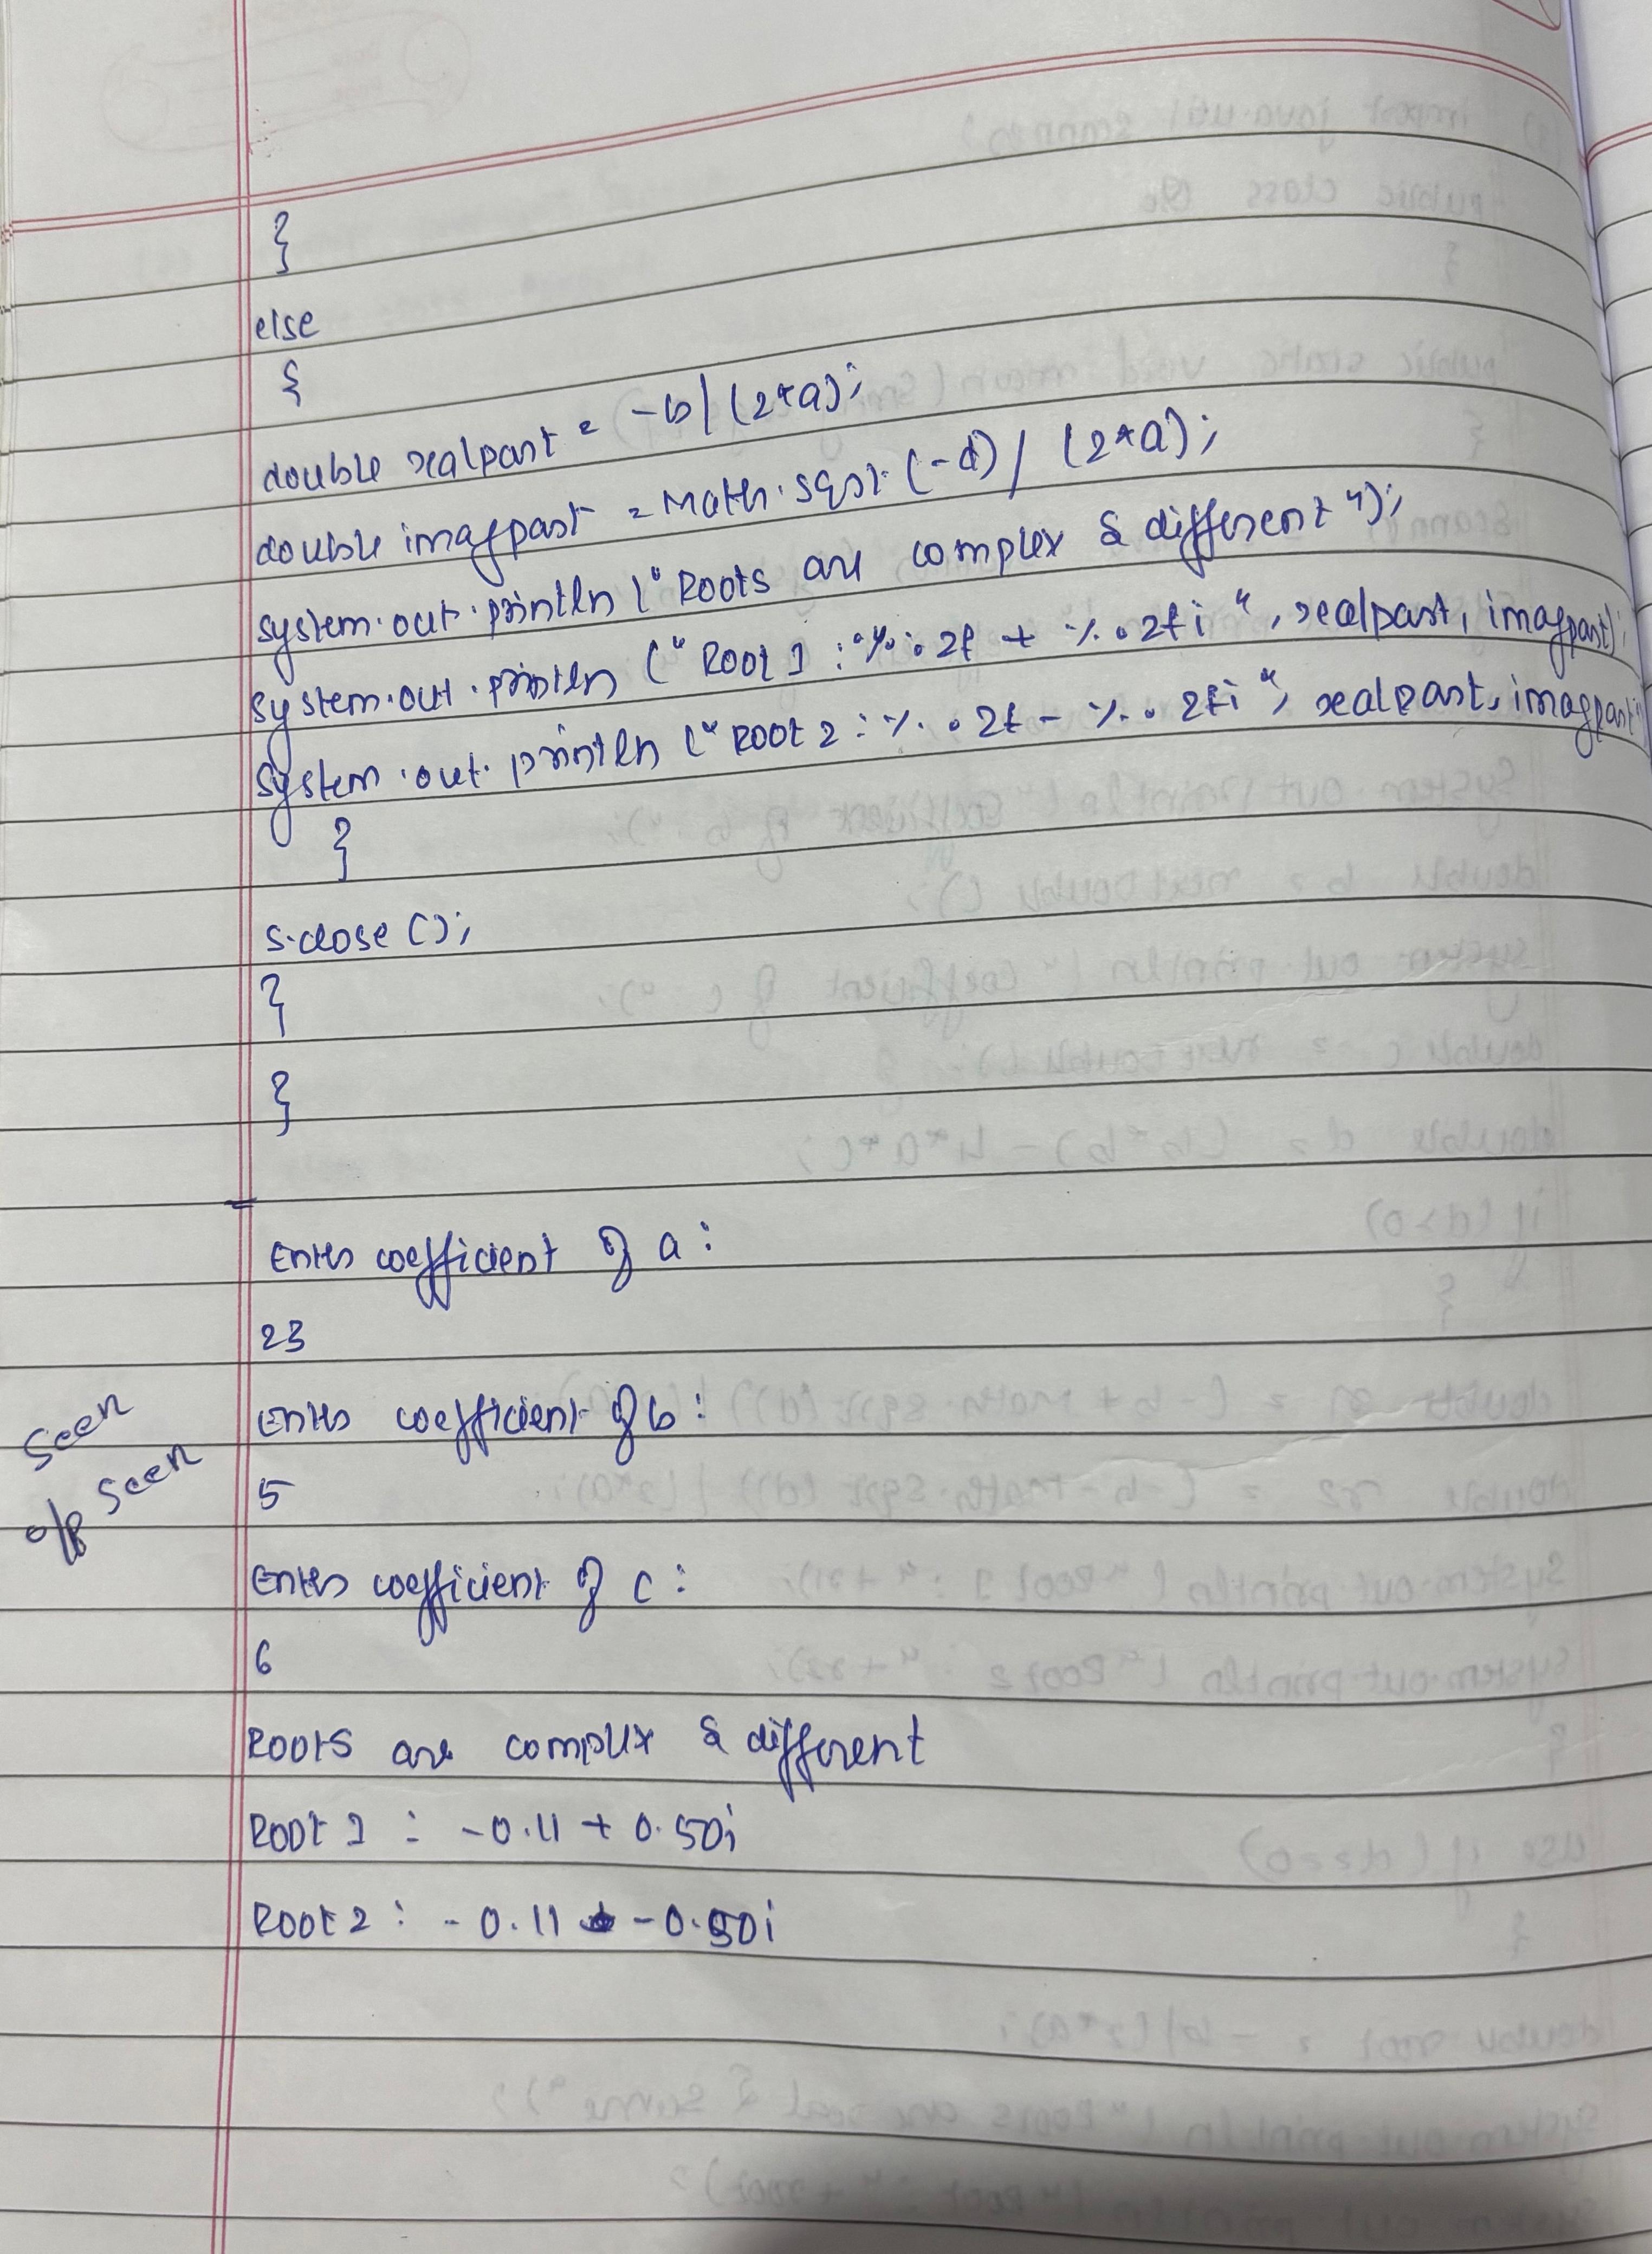 }
else
{
double realpart = -b/(2*a);
double imagpart = Math.sqrt(-d) / (2*a);
system.out.println ("Roots are complex & different");
system.out.println ("Root 1 : %.2f + %.2fi", realpart, imagpart);
system.out.println ("Root 2 : %.2f - %.2fi", realpart, imagpart);
}
s.close ();
}
}
Enter coefficient of a :
23
Enter coefficient of b :
5
Seen
o/p seen
Enter coefficient of c :
6
Roots are complex & different
Root 1 : -0.11 + 0.50i
Root 2 : -0.11 -0.50i